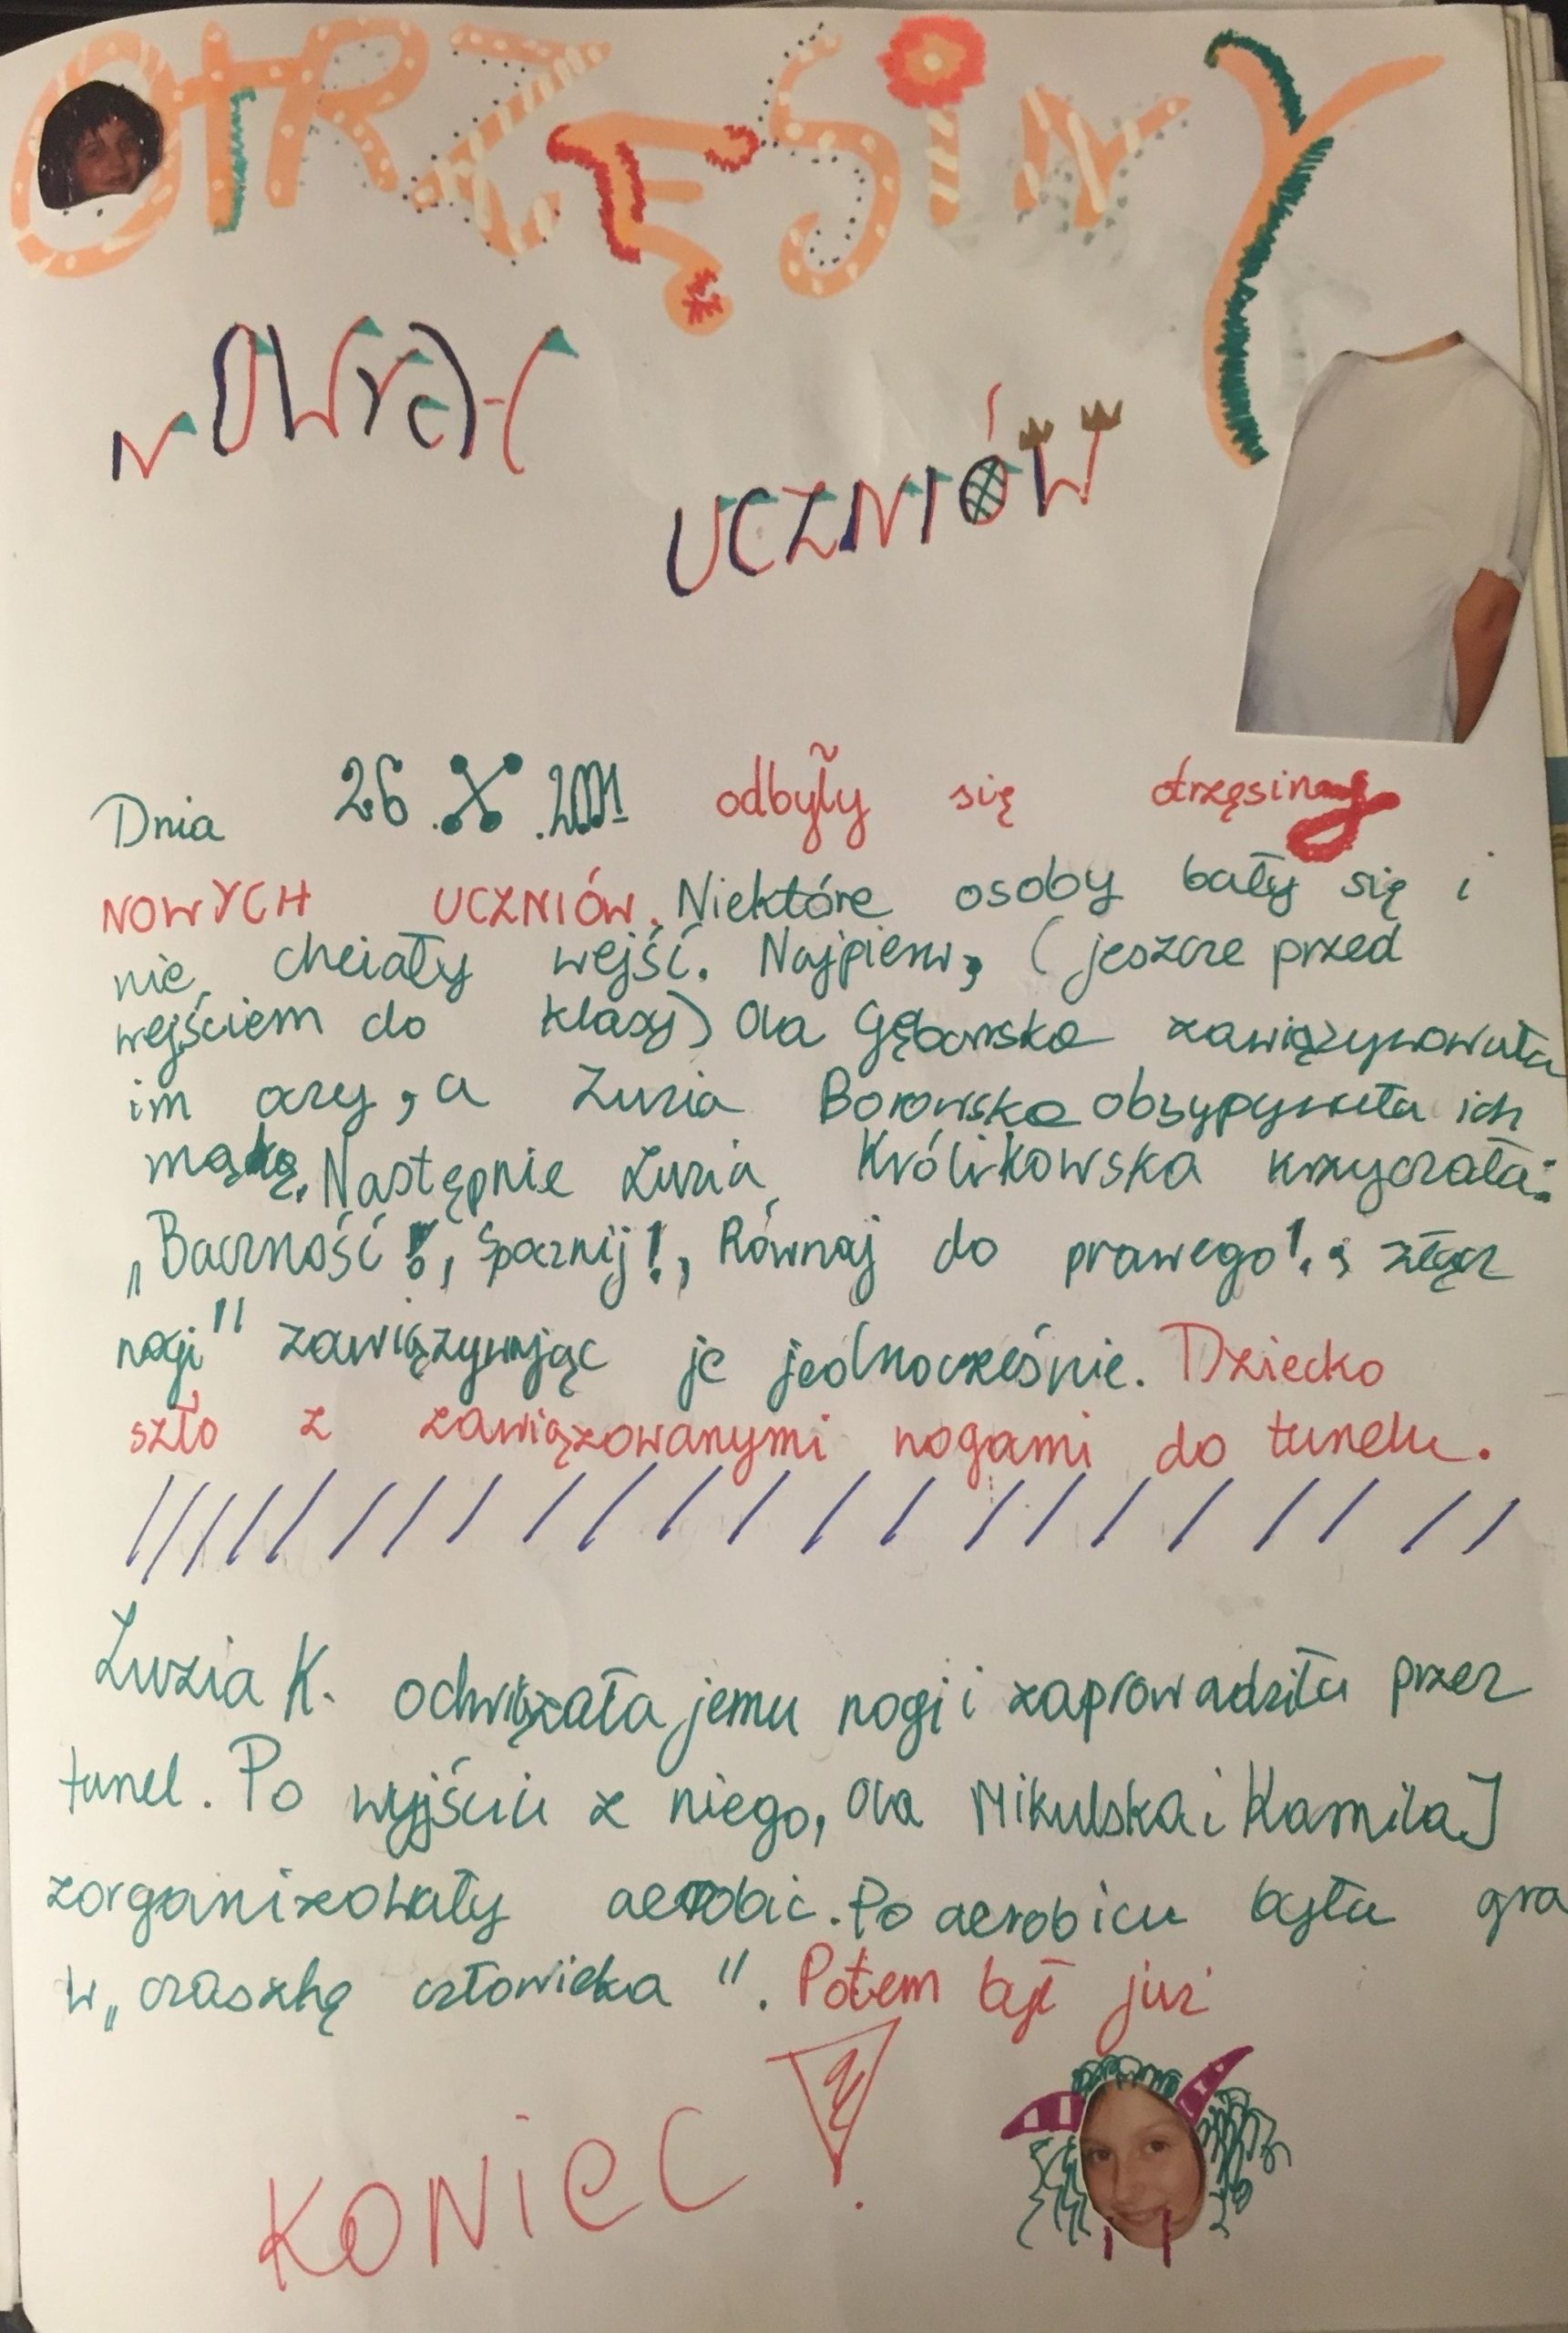 OTRZĘSINY
NOWYCH
UCZNIÓW
Dnia 26.X.2001 odbyły się otrzęsiny
NOWYCH UCZNIÓW. Niektóre osoby bały się i
nie chciały wejść. Najpierw, (jeszcze przed
wejściem do klasy) Ola Gębarska zawiązywowała
im oczy, a Zuzia Borowska obsypywała ich
mąką. Następnie Zuzia Królikowska krzyczała:
„Baczność!, Spocznij!, Równaj do prawego!, złącz
nogi" zawiązywując je jednocześnie. Dziecko
szło z zawiązowanymi nogami do tunelu.
Zuzia K. odwiązała jemu nogi i zaprowadziła przez
tunel. Po wyjściu z niego, Ola Mikulska i Kamila J
zorganizowały aerobic. Po aerobicu była gra
w „czaszkę człowieka". Potem był już
KONIEC!